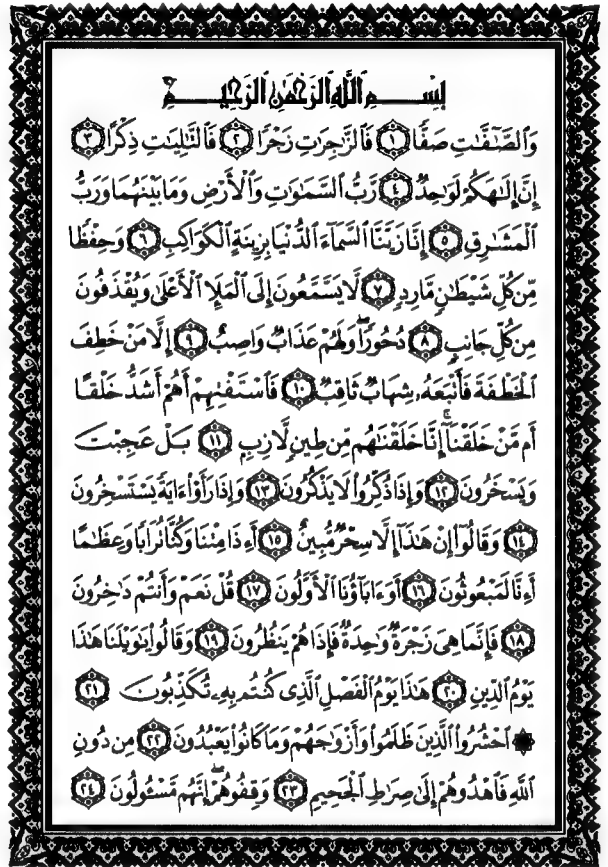 بِسْمِ اللَّهِ الرَّحْمَٰنِ الرَّحِيمِ
وَالصَّـٰٓفَّـٰتِ صَفًّا ١ فَالزَّٰجِرَٰتِ زَجْرًا ٢ فَالتَّـٰلِيَـٰتِ ذِكْرًا ٣
إِنَّ إِلَـٰهَكُمْ لَوَٰحِدٌ ٤ رَّبُّ السَّمَـٰوَٰتِ وَالْأَرْضِ وَمَا بَيْنَهُمَا وَرَبُّ
الْمَشَـٰرِقِ ٥ إِنَّا زَيَّنَّا السَّمَآءَ الدُّنْيَا بِزِينَةٍ الْكَوَاكِبِ ٦ وَحِفْظًا
مِّن كُلِّ شَيْطَـٰنٍ مَّارِدٍ ٧ لَّا يَسَّمَّعُونَ إِلَى الْمَلَإِ الْأَعْلَىٰ وَيُقْذَفُونَ
مِن كُلِّ جَانِبٍ ٨ دُحُورًا ۖ وَلَهُمْ عَذَابٌ وَاصِبٌ ٩ إِلَّا مَنْ خَطِفَ
الْخَطْفَةَ فَأَتْبَعَهُۥ شِهَابٌ ثَاقِبٌ ١٠ فَاسْتَفْتِهِمْ أَهُمْ أَشَدُّ خَلْقًا
أَم مَّنْ خَلَقْنَآ ۚ إِنَّا خَلَقْنَـٰهُم مِّن طِينٍ لَّازِبٍ ١١ بَلْ عَجِبْتَ
وَيَسْخَرُونَ ١٢ وَإِذَا ذُكِّرُوا۟ لَا يَذْكُرُونَ ١٣ وَإِذَا رَأَوْا۟ ءَايَةً يَسْتَسْخِرُونَ
١٤ وَقَالُوٓا۟ إِنْ هَـٰذَآ إِلَّا سِحْرٌ مُّبِينٌ ١٥ أَءِذَا مِتْنَا وَكُنَّا تُرَابًا وَعِظَـٰمًا
أَءِنَّا لَمَبْعُوثُونَ ١٦ أَوَءَابَآؤُنَا الْأَوَّلُونَ ١٧ قُلْ نَعَمْ وَأَنتُمْ دَٰخِرُونَ
١٨ فَإِنَّمَا هِىَ زَجْرَةٌ وَٰحِدَةٌ فَإِذَا هُمْ يَنظُرُونَ ١٩ وَقَالُوا۟ يَـٰوَيْلَنَا هَـٰذَا
يَوْمُ الدِّينِ ٢٠ هَـٰذَا يَوْمُ الْفَصْلِ الَّذِى كُنتُم بِهِۦ تُكَذِّبُونَ ٢١
۞ احْشُرُوا۟ الَّذِينَ ظَلَمُوا۟ وَأَزْوَٰجَهُمْ وَمَا كَانُوا۟ يَعْبُدُونَ ٢٢ مِن دُونِ
اللَّهِ فَاهْدُوهُمْ إِلَىٰ صِرَٰطِ الْجَحِيمِ ٢٣ وَقِفُوهُمْ ۖ إِنَّهُم مَّسْـُٔولُونَ ٢٤